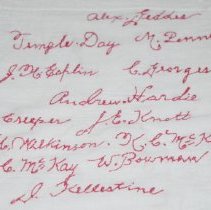 Alex. Geddes
Temple Day M. Penn
J. H. Esplin C. Georges
Andrew Hardie
Creeper J. E. Knott
C. Wilkinson. K. C. McK
C. McKay W. Bowman
D. Kellestine